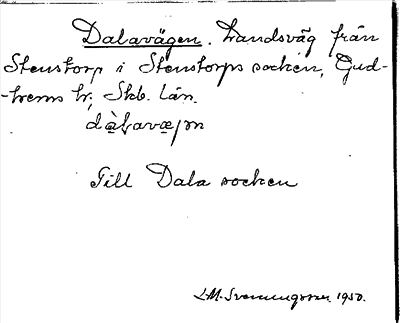 Dalavägen. Landsväg från
Stenstorp i Stenstorps socken, Gud-
-hems hr, Skb. län.
dàlavæjən
Till Dala socken
L.M. Svenungsson 1950.